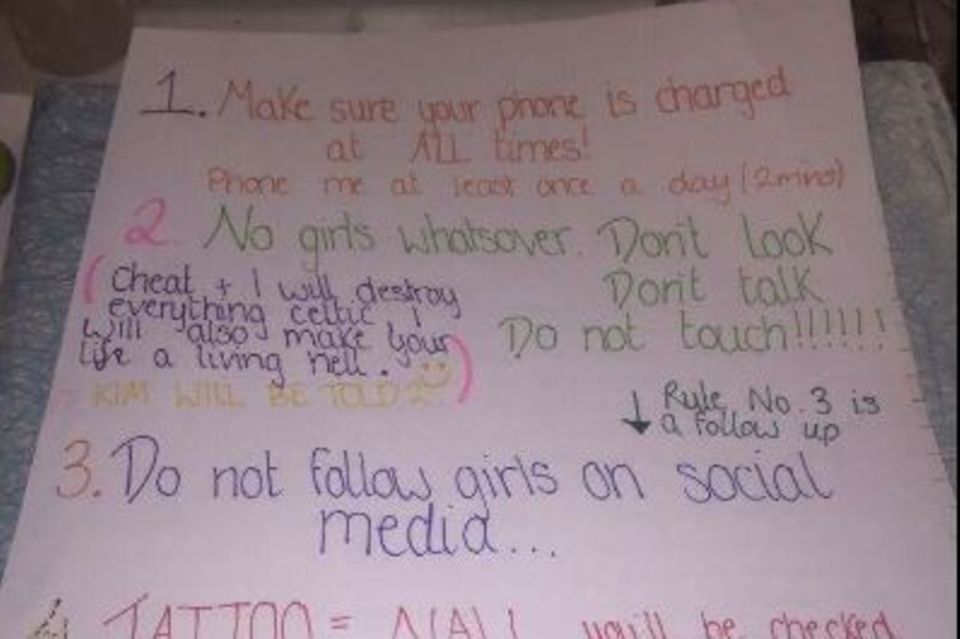 1. Make sure your phone is charged
at ALL times!
Phone me at least once a day (2mins)
2. No girls whatsover. Don't Look
Don't talk
Do not touch!!!!!!
(Cheat + I will destroy
everything celtic I
will also make your
life a living hell. )
KIM WILL BE TOLD 2
↓ Rule No. 3 is
a follow up
3. Do not follow girls on social
media...
4. TATTOO = you'll be checked